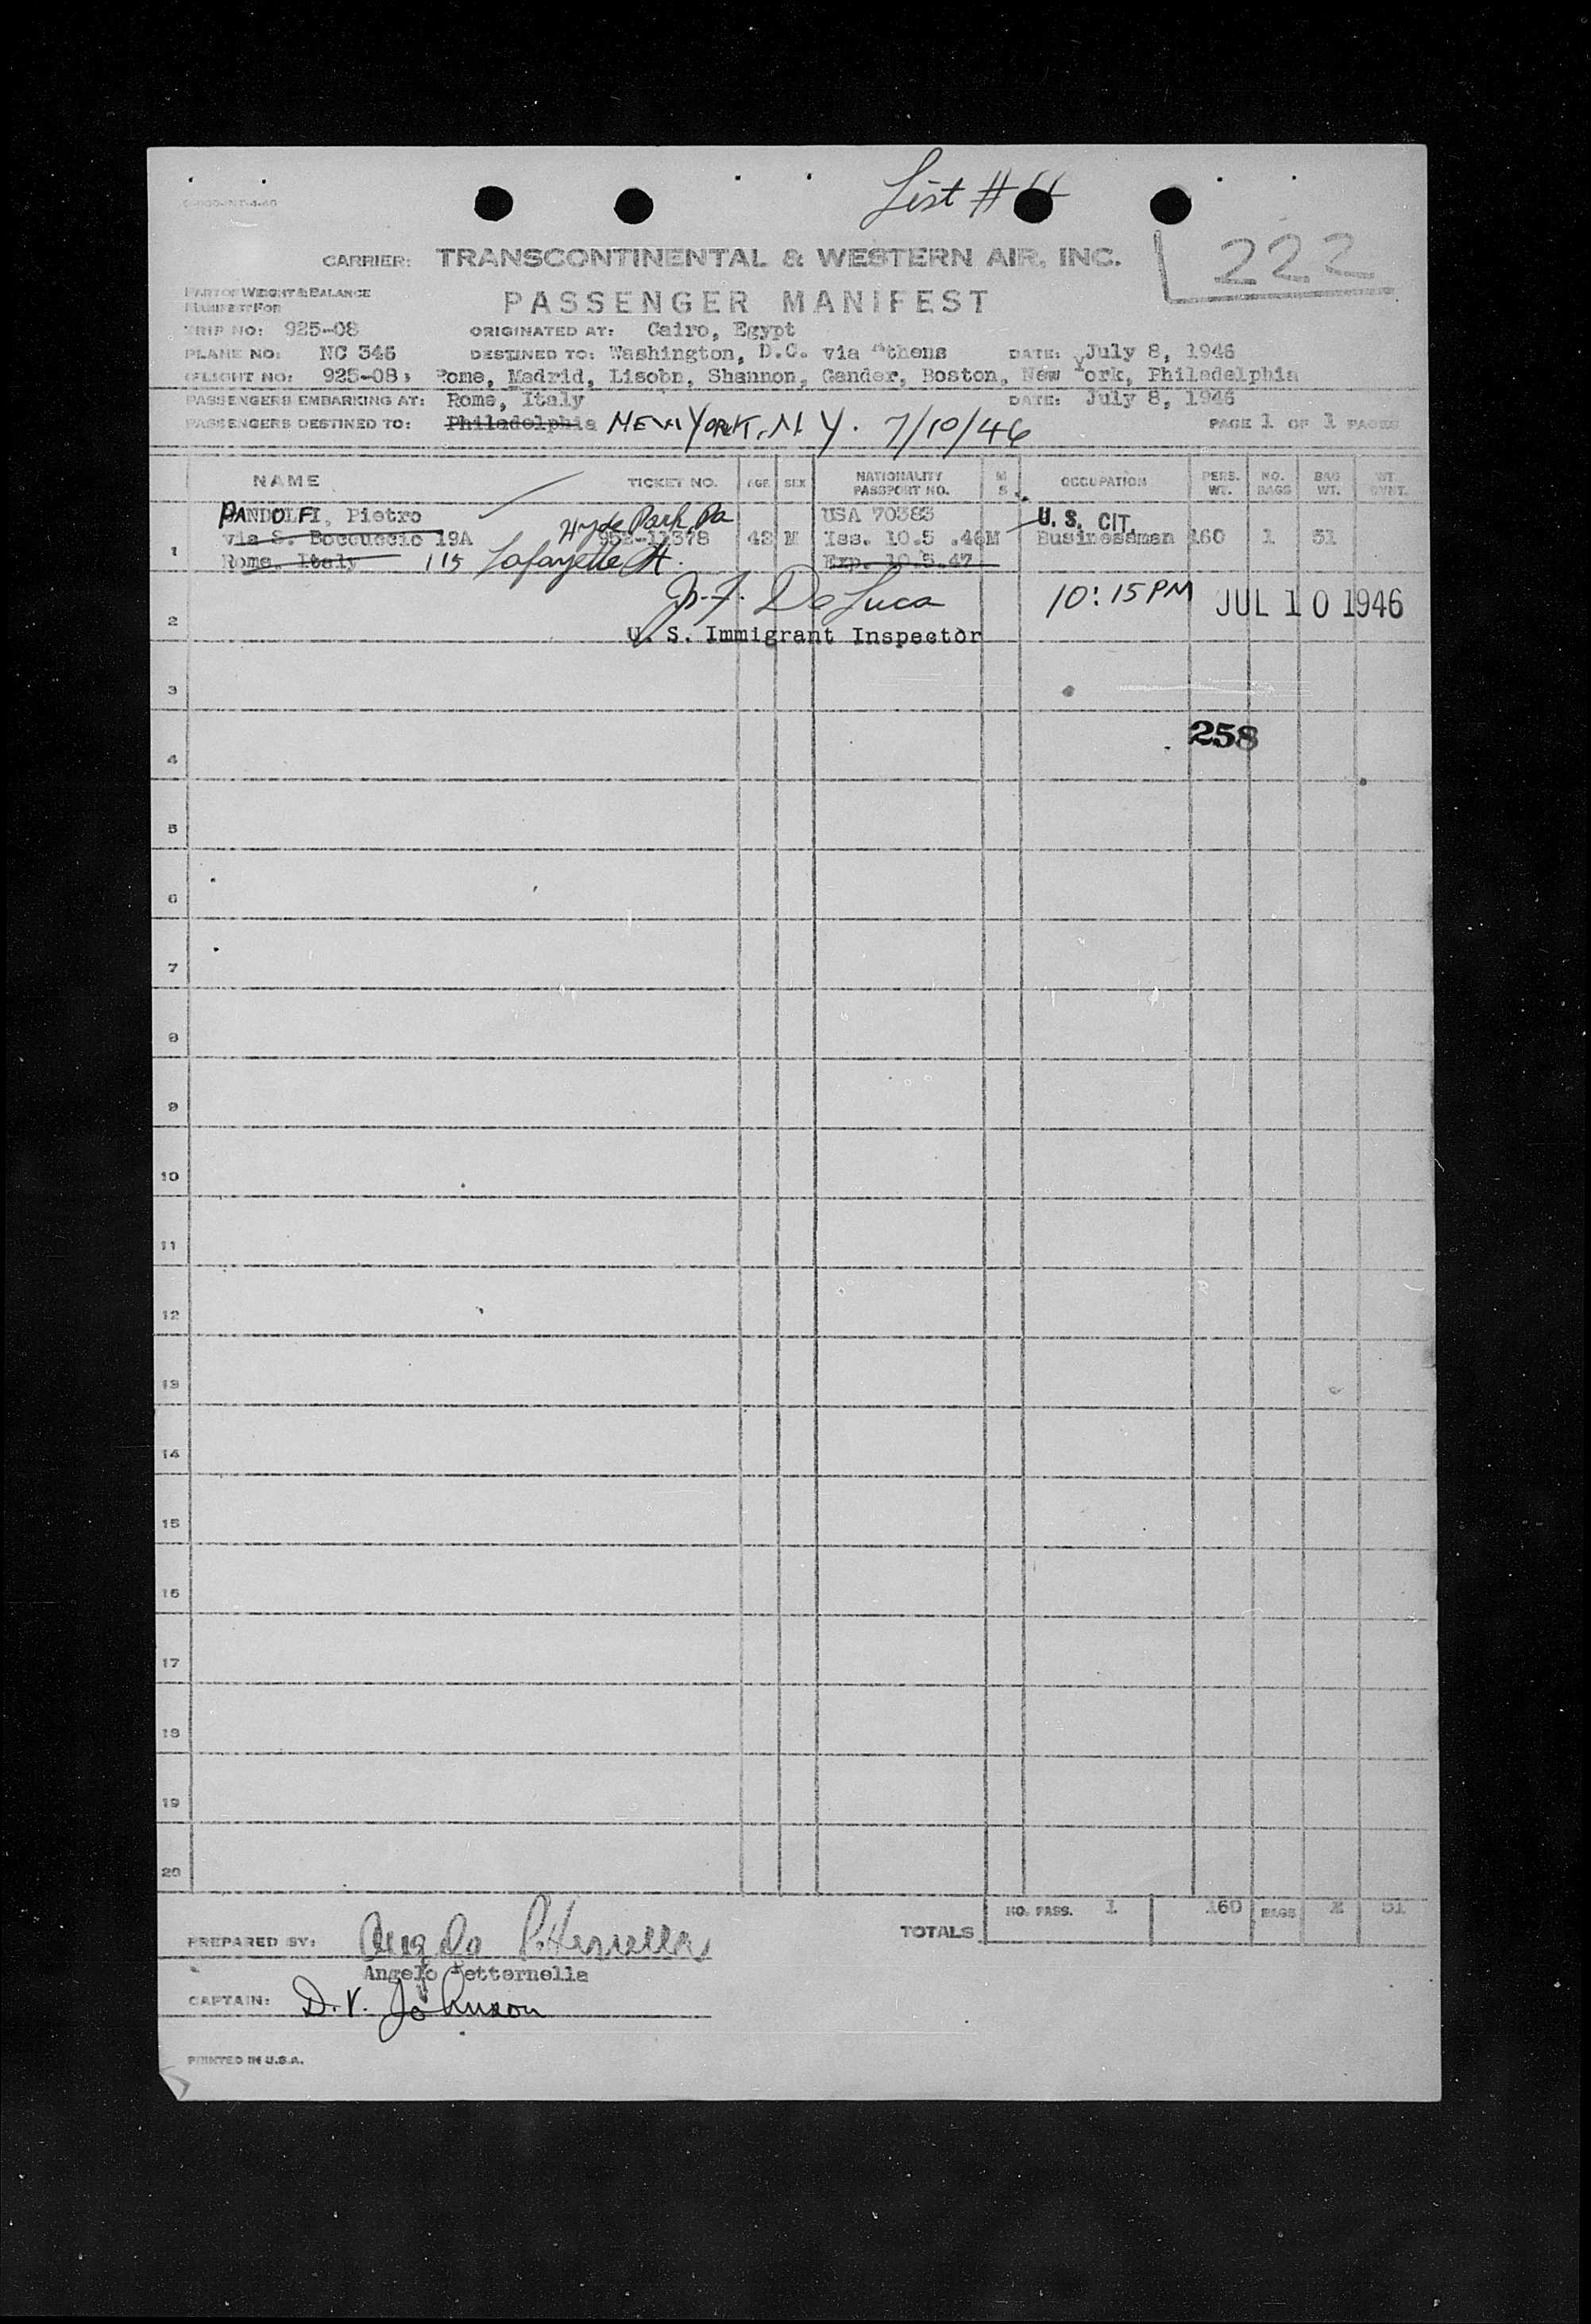 List #
CARRIER: TRANSCONTINENTAL & WESTERN AIR, INC.
222
PART OF WEIGHT & BALANCE
MANIFEST FOR
PASSENGER MANIFEST
TRIP NO: 925-08 ORIGINATED AT: Cairo, Egypt
PLANE NO: NC 346 DESTINED TO: Washington, D.C. via Athens DATE: July 8, 1946
(FLIGHT NO: 925-08) Rome, Madrid, Lisobn, Shannon, Gander, Boston, New York, Philadelphia
PASSENGERS EMBARKING AT: Rome, Italy DATE: July 8, 1946
PASSENGERS DESTINED TO: Philadelphia NEW YORK, N.Y. 7/10/46 PAGE 1 OF 1 PAGES
NAME TICKET NO. AGE SEX NATIONALITY PASSPORT NO. M S OCCUPATION PERS. WT. NO. BAGS BAG WT. WT.
PANDOLFI, Pietro Hyde Park, Pa USA 70383 U. S. CIT.
1 via S. Boccuccio 19A 952-11378 42 M Iss. 10.5.46 M Businessman 160 1 31
Rome, Italy 115 Lafayette St. Exp. 10.5.47
J. F. DeLuca 10:15 PM JUL 10 1946
2 U. S. Immigrant Inspector
3
258
4
5
6
7
8
9
10
11
12
13
14
15
16
17
18
19
20
TOTALS NO. PASS. 1 160 BAGS 31
PREPARED BY: Angelo Petternella
Angelo Petternella
CAPTAIN: D. V. Johnson
PRINTED IN U.S.A.